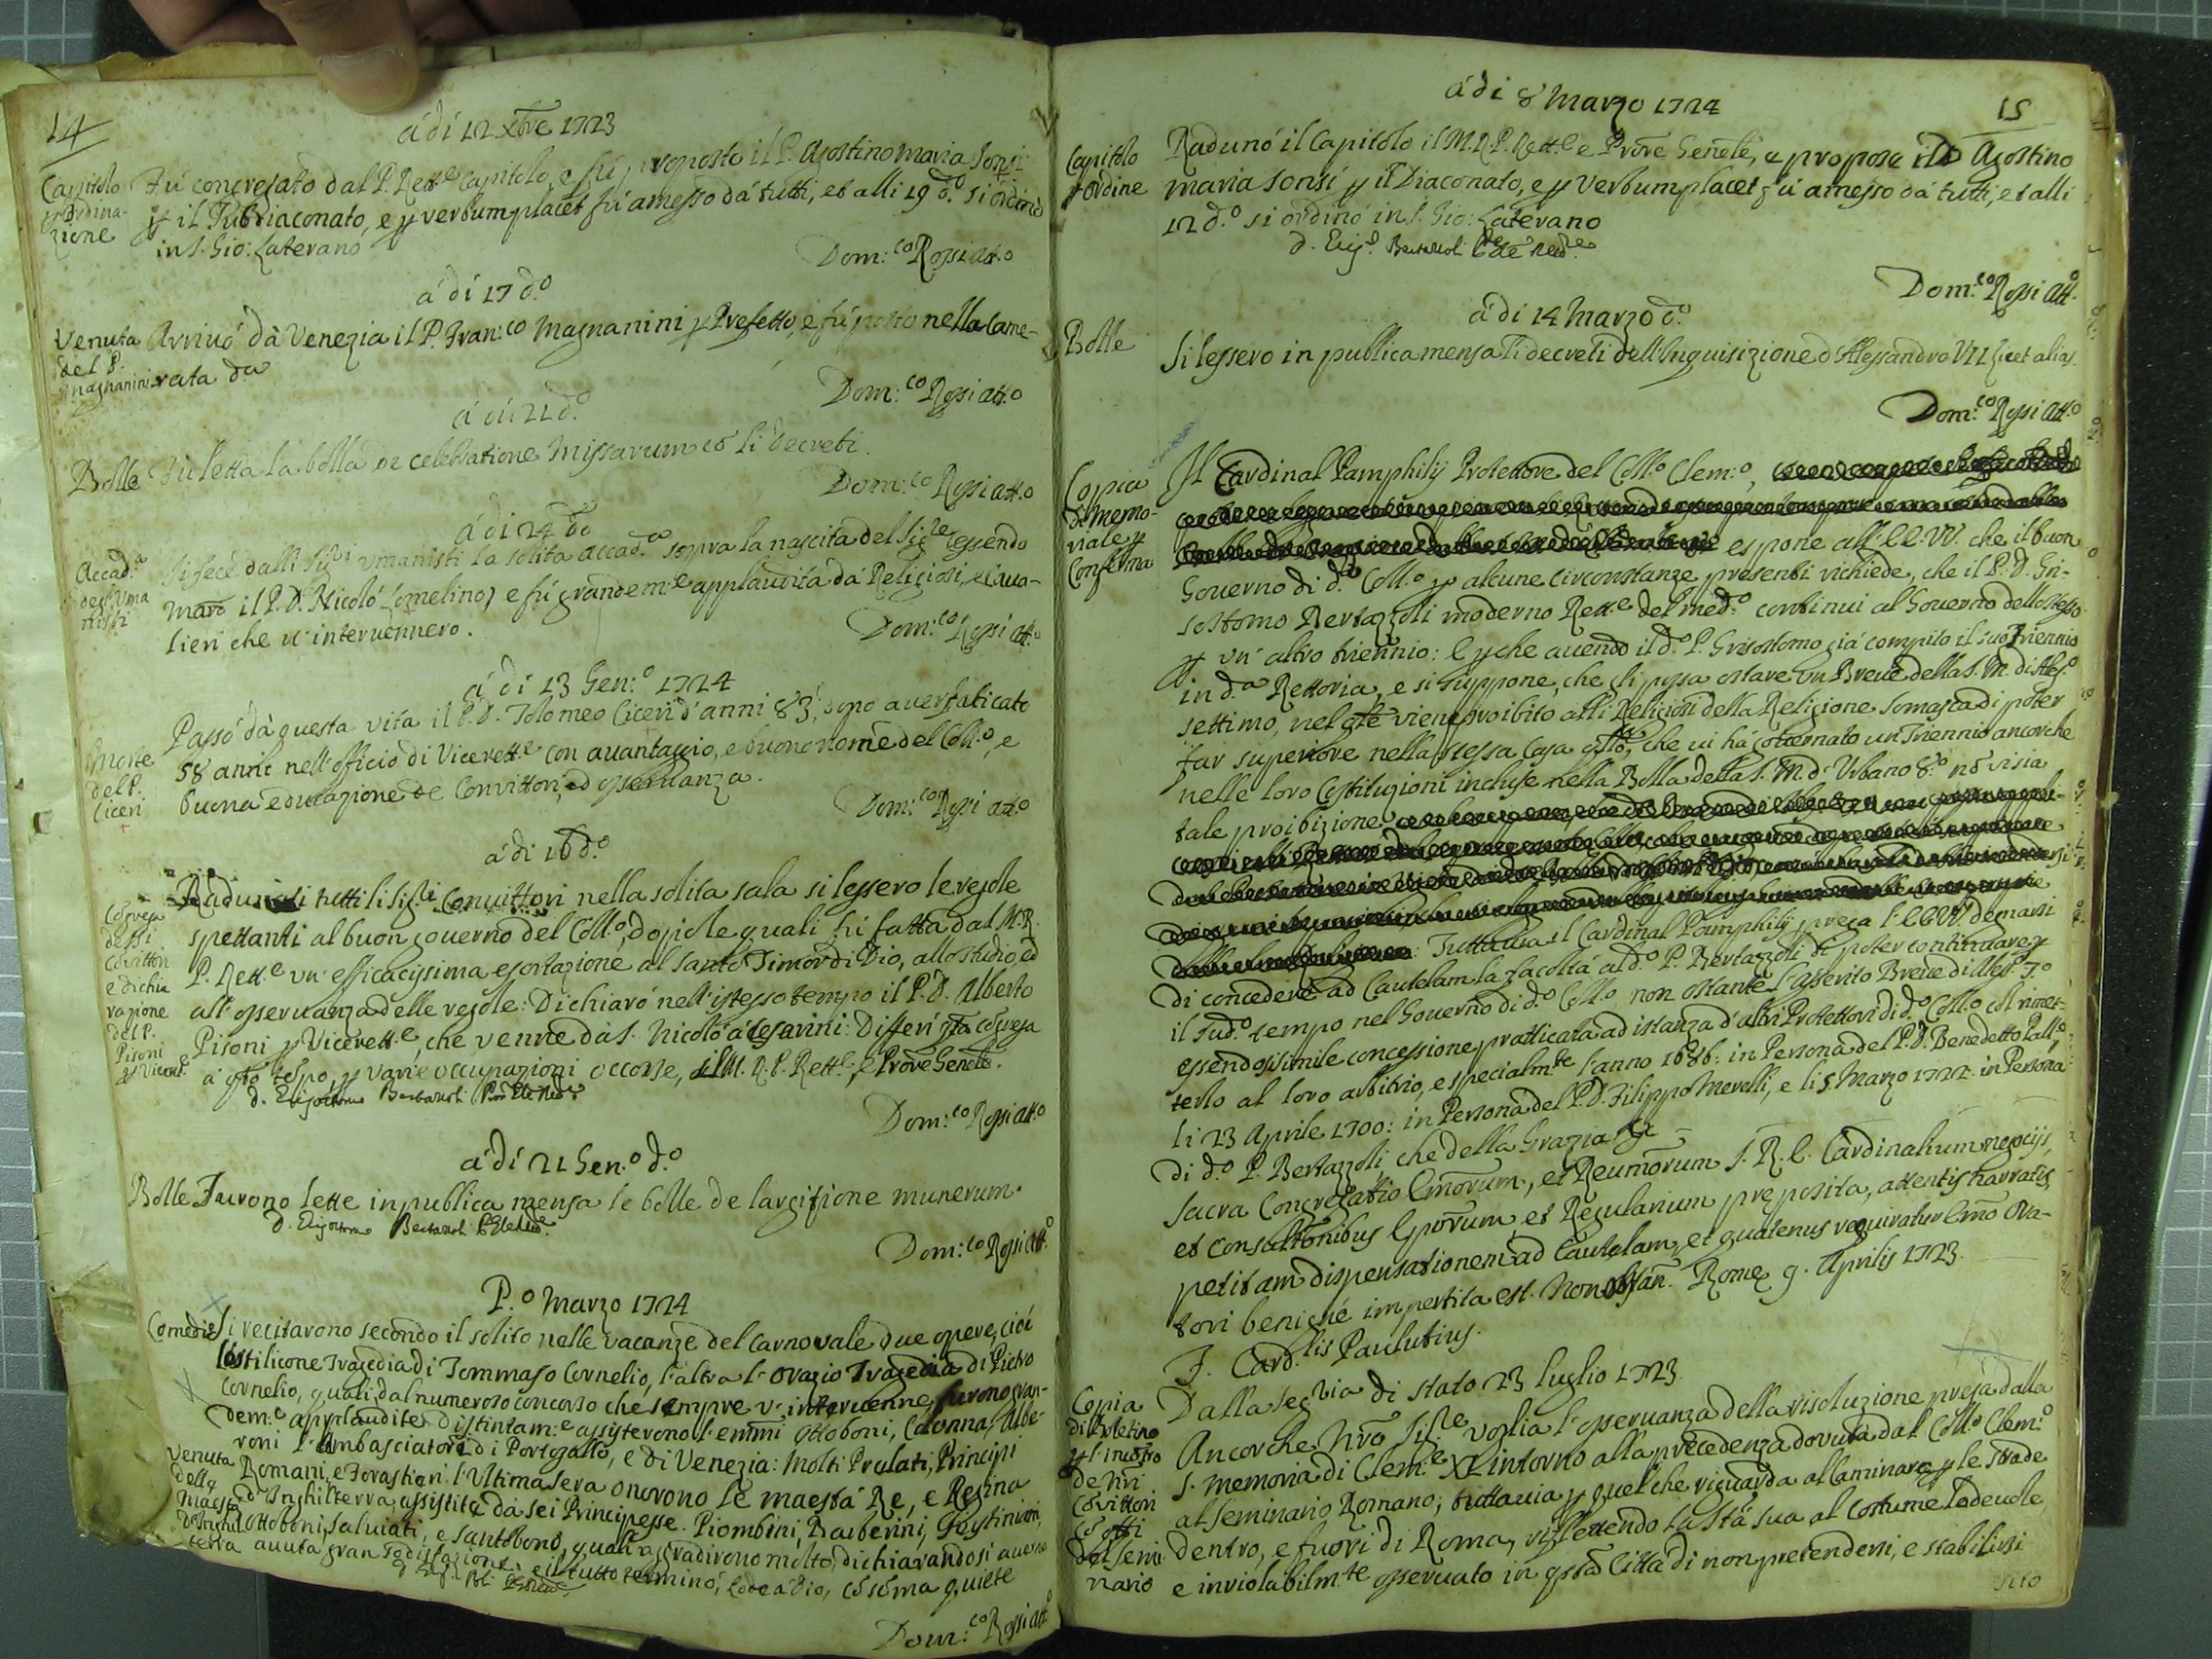 14
á dí 12 Xbre 1723
Capitolo
p Ordina-
zione
Fú congregato dal P. Rett.e Capitolo, e fú proposto il P. Agostino Maria Sonsi
p il Subdiaconato, e p verbum placet fú amesso dá tutti, et alli 19 d.o si ordinó
in S. Gio: Laterano
Dom:co Rossi att.o
á di 17 d.o
Venuta
del P.
Magnanini
Arrivó dà Venezia il P. Fran:co Magnanini p Prefetto, e fú posto nella Came-
rata d.a
Dom:co Rossi att.o
á di 21 d.o
Bolle
Fu letta la bolla de celebratione Missarum có li decreti.
Dom:co Rossi att.o
á di 24 d.o
Accad.a
degl'Uma
nisti
Si fece dalli Sig.i Umanisti la solita accad.a sopra la nascita del Sig.re essendo
Maro il P. D. Nicoló Lomelino, e fú grandem:e applaudita dá Religiosi, e Cava-
lieri che v'intervennero.
Dom:co Rossi att.o
á di 13 Gen:o 1724
Morte
del P.
Ciceri
Passó dà questa vita il P. D. Tolomeo Ciceri d'anni 83, dopo aver faticato
58 anni nell'officio di Vicerett.e con avantaggio, e buono nome del Coll.o, e
buona educazione de Convittori, ed osservanza.
Dom:co Rossi att.o
á di 16 d.o
Cógrega
de SSi
Cóvittori
e dichia
razione
del P.
Pisoni
p Vicerett.e
Radunati tutti li Sig.i Convittori nella solita sala si lessero le regole
spettanti al buon governo del Coll.o, dopo le quali fú fatta dal M. R.
P. Rett.e un'efficacissima esortazione al santo Timor di Dio, allo studio, ed
all'osservanza delle regole: Dichiaró nell'istesso tempo il P. D. Alberto
Pisoni p Vicerett.e, che venne dà S. Nicoló á Cesarini: Differí qta cógrega
á qto tépo, p varie occupazioni occorse, il M. R. P. Rett.e, e Prove Genele.
Dom:co Rossi att.o
á dí 21 Gen.o d.o
Bolle
Furono lette in publica mensa le bolle de largitione munerum.
Dom:co Rossi att.o
P.o Marzo 1724
Comedie
Si recitarono secondo il solito nelle vacanze del Carnovale due opere, cioé
lo Stilicone Tragedia di Tommaso Cornelio, l'altra l'Orazio Tragedia di Pietro
Cornelio, quali dal numeroso concorso che sempre v'intervenne, furono gran-
dem:e applaudite. Distintam:e assisterono l'emmi Ottoboni, Colonna, Albe-
roni l'Ambasciatori di Portogallo, e di Venezia: Molti Prelati, Principi
Venuta
della
Maestà
d'Inghil
terra
Romani, e Forastieri. l'Ultima sera onorono le maestá Re, e Regina
d'Inghilterra, assistite dà sei Principesse. Piombini, Barberini, Giustiniani,
Ottoboni, Salviati, e Santobono, quali aggradirono molto, dichiarandosi averne
avuta gran sodisfazione, e il tutto terminó, Lode á Dio, có soma quiete
Dom:co Rossi att.o
15
á di 8 Marzo 1724
Capitolo
p Ordine
Radunó il Capitolo il M. R. P. Rett.e e Prove Genele, e propose il P. Agostino
Maria Sonsi p il Diaconato, e p Verbum placet fú amesso dá tutti, et alli
12 d.o si ordinó in S. Gio: Laterano
Dom:co Rossi att.o
á di 14 Marzo d.o
Bolle
Si lessero in publica mensa li decreti dell'Inquisizione d'Alessandro VII licet alias.
Dom:co Rossi att.o
Copia
di Memo-
riale p
Conferma
Il Cardinal Pamphilij Protettore del Coll.o Clem:o,
espone all'EE.VV. che il buon
Governo di d.o Coll.o p alcune circonstanze presenti richiede, che il P. D. Gri-
sostomo Bertazzoli moderno Rett.e del med.o continui al Governo dello stesso
p un'altro triennio: E p che avendo il d.o P. Grisostomo giá compito il suo Triennio
in d.a Rettoria, e si suppone, che gli possa ostare un Breve della S. M. di Ales.o
settimo, nel qle vien proibito alli Religiosi della Religione Somasca di poter
far superiore nella stessa Casa qllo, che vi há gov̄ernato un Triennio ancorche
nelle loro Costituzioni incluse nella Bolla della S. M. d'Urbano 8.o nó vi sia
tale proibizione
: Tuttavia il Cardinal Pamphilij prega l'EE.VV. degnarsi
di concedere ad Cautelam la facoltá al d.o P. Bertazzoli di poter continuare p
il sud.o tempo nel Governo di d.o Coll.o non ostante l'asserito Breve di Aless.o 7.o
essendosi simile concessione pratticata ad istanza d'altri Protettori di d.o Coll.o col rimet-
terlo al loro arbitrio, e specialm.te l'anno 1686: in Persona del P. D. Benedetto Pall.o,
li 23 Aprile 1700: in Persona del P. D. Filippo Merelli, e li 5 Marzo 1722 in Persona
di d.o P. Bertazzoli, che della Grazia &c
Sacra Congregatio Emorum, et Reumorum S. R. E. Cardinalium negocijs,
et consultōnibus Eporum et Regularium preposita, attentis narratis
petitam dispensationem ad Cautelam, et quatenus requiratur Emo Ora-
tori benigné impertita est. Non obstan. Rome 9. Aprilis 1723.
F. Card.lis Paulutius.
Copia
di Biglietino
p l'incótro
de Nri
Cóvittori
có qlli
del Semi
nario
Dalla Seg.ria di Stato 23 luglio 1723.
Ancorche Nro Sig.re voglia l'osservanza della risoluzione presa dalla
S. Memoria di Clem.e XI intorno alla precedenza dovuta dal Coll.o Clem:o
al Seminario Romano; tuttavia p quel che riguarda al Caminare p le strade
dentro, e fuori di Roma, riflettendo la Stá sua al Costume lodevole
e inviolabilm.te osservato in qsta Cittá di non pretendersi, e stabilirsi